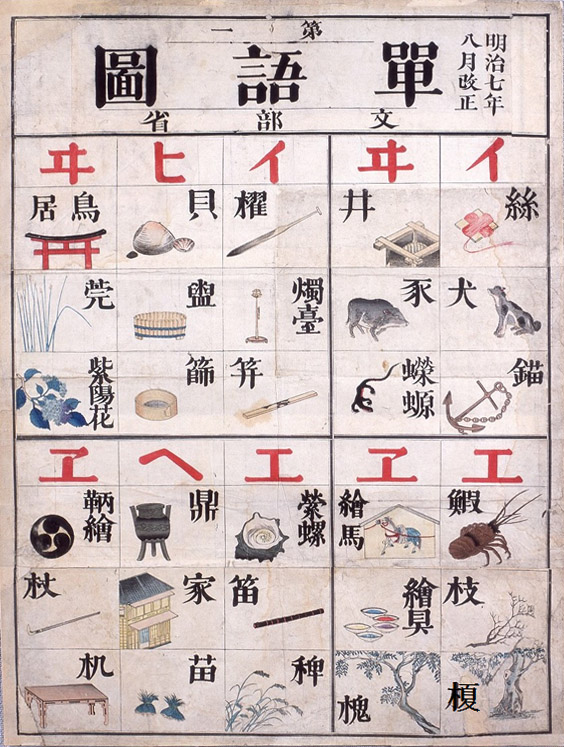 明治七年
八月改正
第一
單語圖
文部省
イ
絲
犬
錨
ヰ
井
豕
蠑螈
イ
櫂
燭臺
笄
ヒ
貝
盥
篩
ヰ
鳥居
莞
紫陽花
エ
鰕
枝
榎
ヱ
繪馬
繪具
槐
エ
榮螺
笛
稗
ヘ
鼎
家
苗
ヱ
鞆繪
杖
机